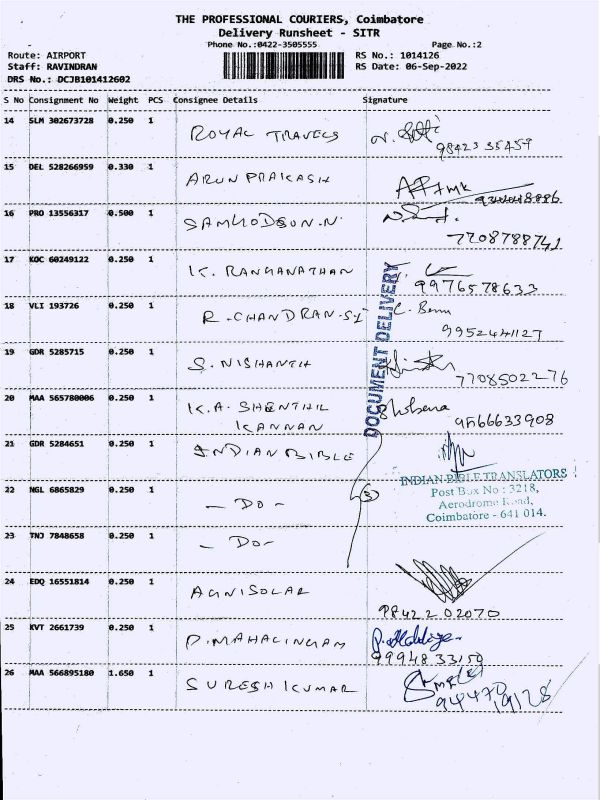 THE PROFESSIONAL COURIERS, Coimbatore
Delivery Runsheet - SITR
Phone No.:0422-3505555 Page No.:2
Route: AIRPORT RS No.: 1014126
Staff: RAVINDRAN RS Date: 06-Sep-2022
DRS No.: DCJB101412602
S No Consignment No Weight PCS Consignee Details Signature
14 SLM 302673728 0.250 1 ROYAL TRAVELS
9842335459
15 DEL 528266959 0.330 1 ARUN PRAKASH
16 PRO 13556317 0.500 1
7708788741
17 KOC 60249122 0.250 1 K. RANGANATHAN
9976578633
18 VLI 193726 0.250 1 R. CHANDRAN
9952441127
19 GDR 5285715 0.250 1 S. NISHANTH
7708502276
20 MAA 565780006 0.250 1 K.A. SHENTHIL
KANNAN
9566633908
DOCUMENT DELIVERY
21 GDR 5284651 0.250 1 INDIAN BIBLE
INDIAN BIBLE TRANSLATORS
Post Box No : 3218,
Aerodrome Road,
Coimbatore - 641 014.
22 NGL 6865829 0.250 1 - DO -
3
23 TNJ 7848658 0.250 1 - DO -
24 EDQ 16551814 0.250 1 AGNISOLAR
9842202070
25 KVT 2661739 0.250 1 P. MAHALINGAM
9994833150
26 MAA 566895180 1.650 1 SURESH KUMAR
9447019128